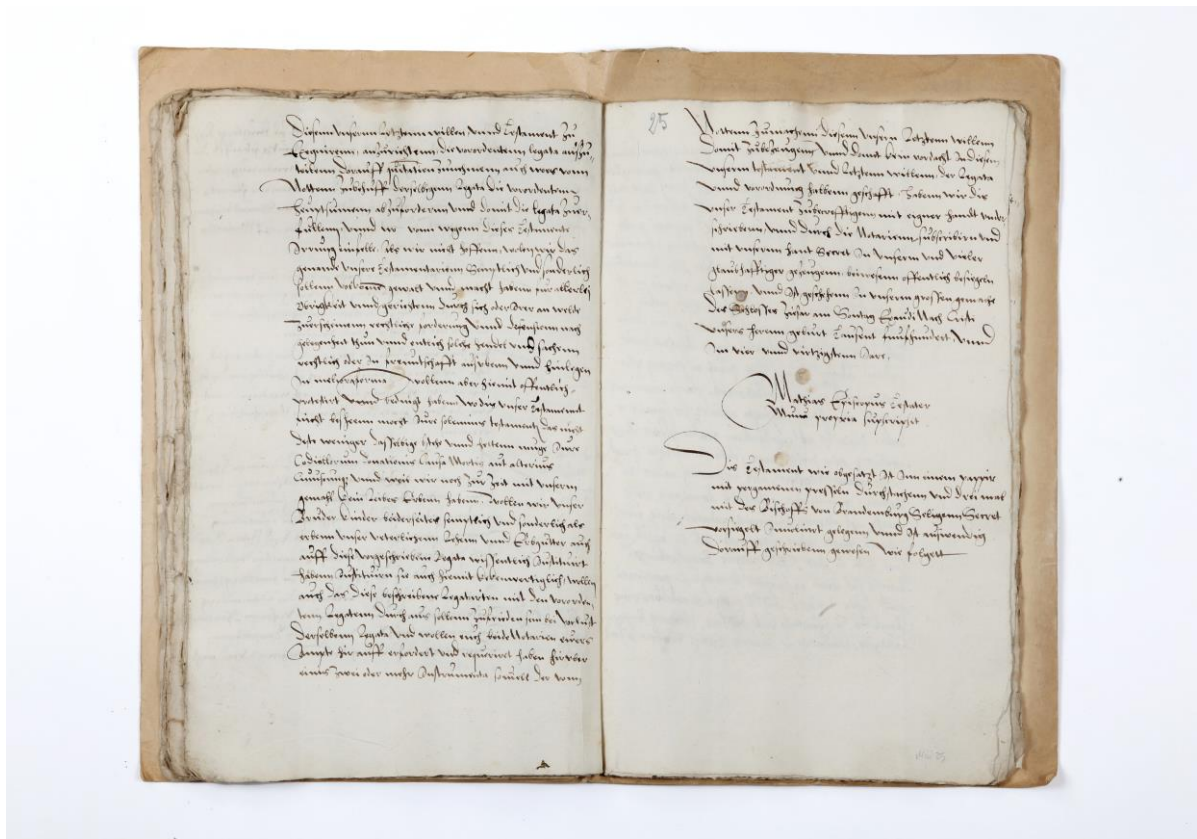 Diesenn unsernn letztenn willen unnd Testament zu
Exequirenn, anzurichtenn, die verordentenn legata auszu-
teilenn dorauff quitantien zunehmenn auch wers vonn
Nottenn zubehuff derselbigenn Legata die verordentenn
heuptsumenn abzufordernn unnd domit die legata zuer-
fullenn unnd wo vonn wegenn dieses Testaments
Irrung einfielle, des wir nicht hoffenn, wolen wir das
genante unsere Testamentarienn Semptlich und sonderlich
sollenn gewalt unnd macht habenn fur allerlei
Obrigkeit unnd gerichtenn durch sich oder Iren anwelte
Zuerscheinenn rechtliche forderung unnd defension nach
gelegenheit thun unnd entlich solche hendel und sachenn
rechtlich oder in freuntschafft unnd hinlegen
In meliori forma wollenn aber hiemit offentlich
unnd bedingt habenn, wo dis unser Testament
nicht bestehenn mocht Jure solennis testamenti das nicht
deste weniger dasselbige stehe unnd haltenn muge Jure
Codicillorum donationis Causa Mortis aut alterius
unnd weil wir noch zur Zeit mit unserm
gemahl kein leibes Erbenn habenn, wollen wir unser
Bruder kinder beiderseits semptlich und sonderlich als
erbenn unser veterlichenn Lehenn unnd Erbgutter auch
auff diese vorgeschriebene Legata wissentlich Instituirt
habenn Instituirn sie auch hiemit wollen
auch das diese beschriebene Legatarien mit den verorden-
tenn Legatenn durchaus sollenn zufrieden sein bei verlust
derselbenn Legata Und wollen euch beide Notarien ewers
Ampts hir auff erfordert und requiriret haben hirvber
eints zwei oder mehr Instrumenta soviell der vonn
25
Nottenn zumachenn diesenn unsern Letztenn willenn
Domit zubezeugenn unnd domit kein verdacht In diesen
unserm testament unnd Letztenn willenn der Legata
unnd verordnung habenn geschafft. Habenn wir dis
unser Testament zubekrefftigenn mit eigner handt under-
schriebenn unnd durch die Notarienn subscribirn und
mit unserm hant Secret In unserm und vieler
glaubhafftiger gezeugenn beiwesenn offentlich besiegeln
lassenn unnd Ist geschehenn In unserm grossen gemache
des Schlosses Ziesar am Sontag Exaudi Nach Cristi
unsers herenn geburt Tausent funffhundert unnd
Im vier und viertzigstenn Jare.
Mathias Episcopus Testator
Manu propria subscripsit
Dis Testament wie obgesatzt Ist Inn einem pappir
mit pergamenen presseln durchstochenn und drei mal
mit des Bischoffs von Brandenburg Seligenn Secret
versiegelt gelegenn unnd Ist auswendig
dorauff geschriebenn gewesen wie folgett